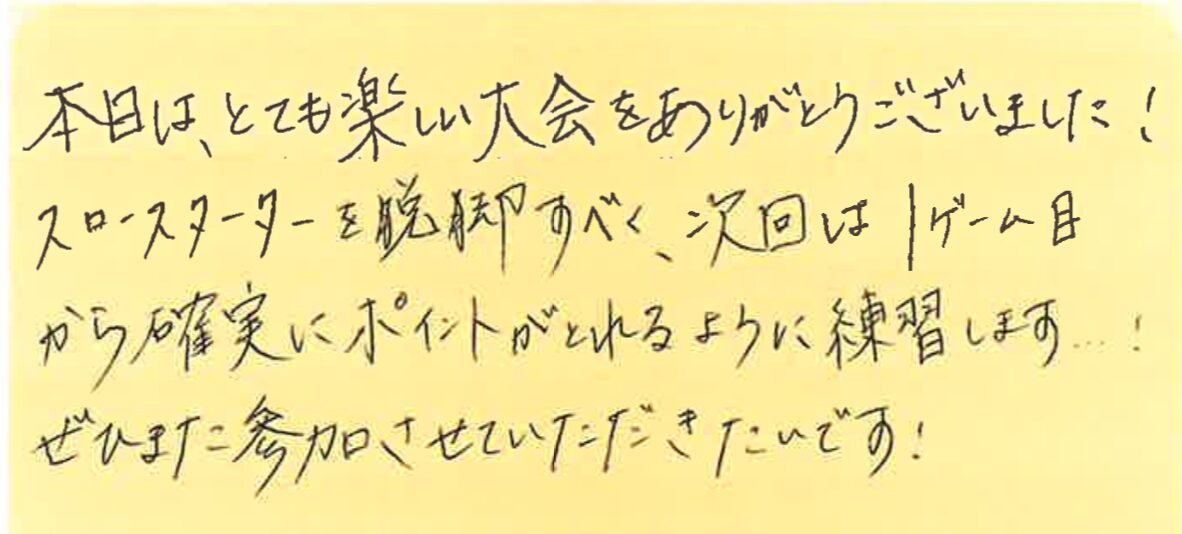 本日は、とても楽しい大会をありがとうございました！
スロースターターを脱却すべく、次回は1ゲーム目
から確実にポイントがとれるように練習します…！
ぜひまた参加させていただきたいです！